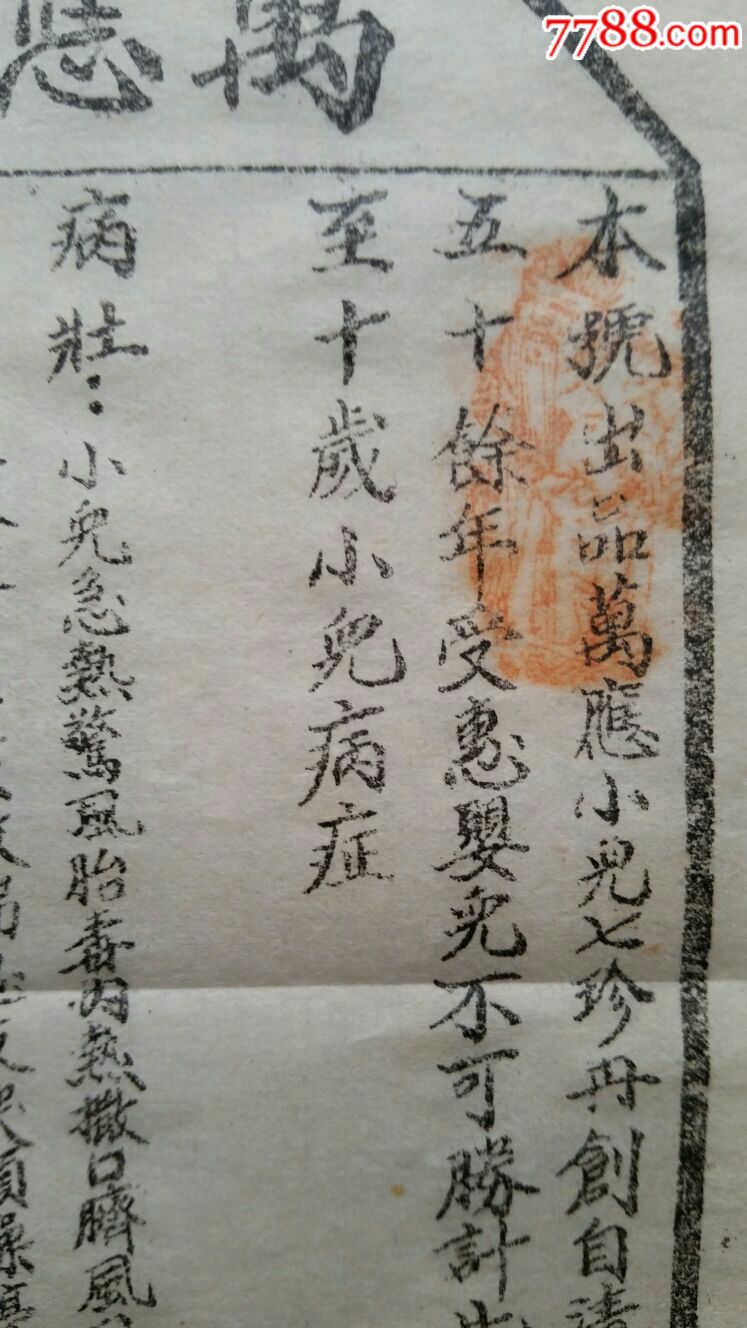 7788.com
萬應
本號出品萬應小兒七珍丹創自清
五十餘年受惠嬰兒不可勝計
至十歲小兒病症
病壯：小兒急熱驚風胎毒內熱撒口臍風